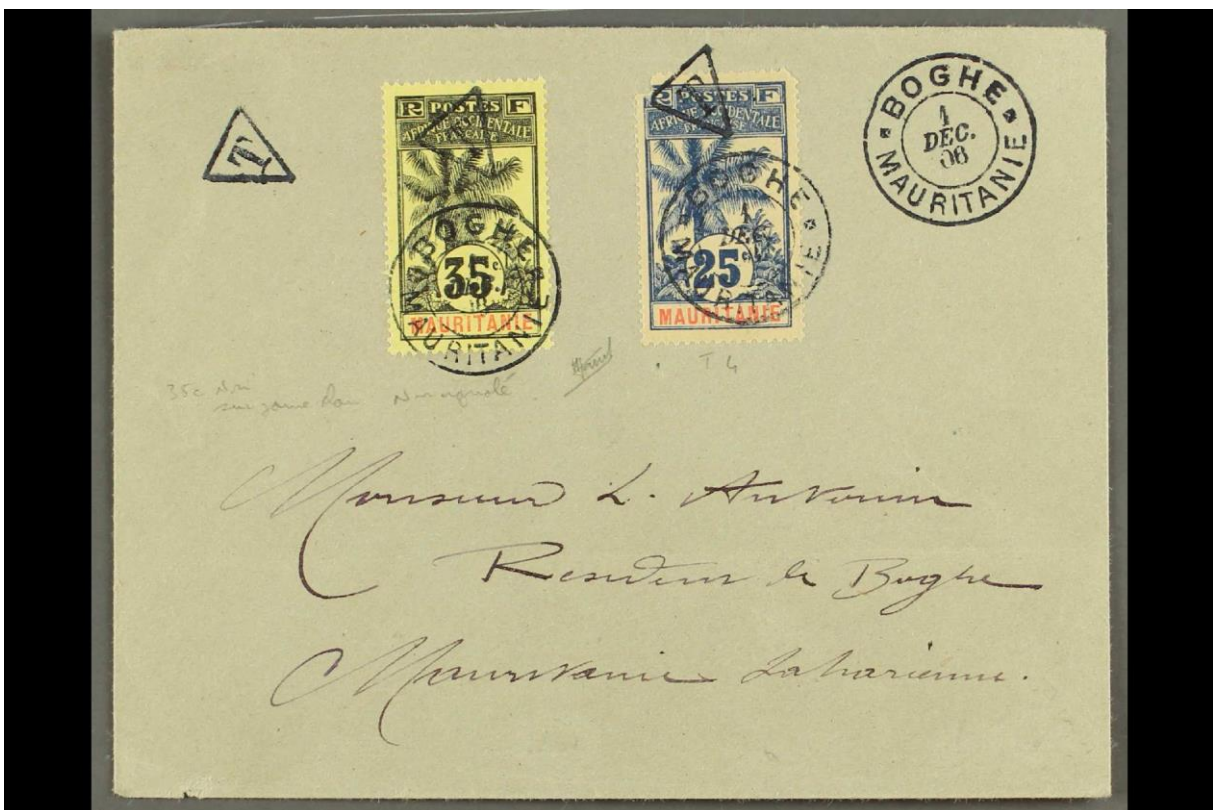 T
R POSTES F
AFRIQUE OCCIDENTALE
FRANÇAISE
35c
MAURITANIE
BOGHE
MAURITANIE
R POSTES F
AFRIQUE OCCIDENTALE
FRANÇAISE
25c
MAURITANIE
BOGHE
1
DEC.
MAURITANIE
BOGHE
1
DEC.
06
MAURITANIE
35c
sur jaune
T 4
Monsieur L. Antonin
Resident de Boghe
Mauritanie Saharienne.